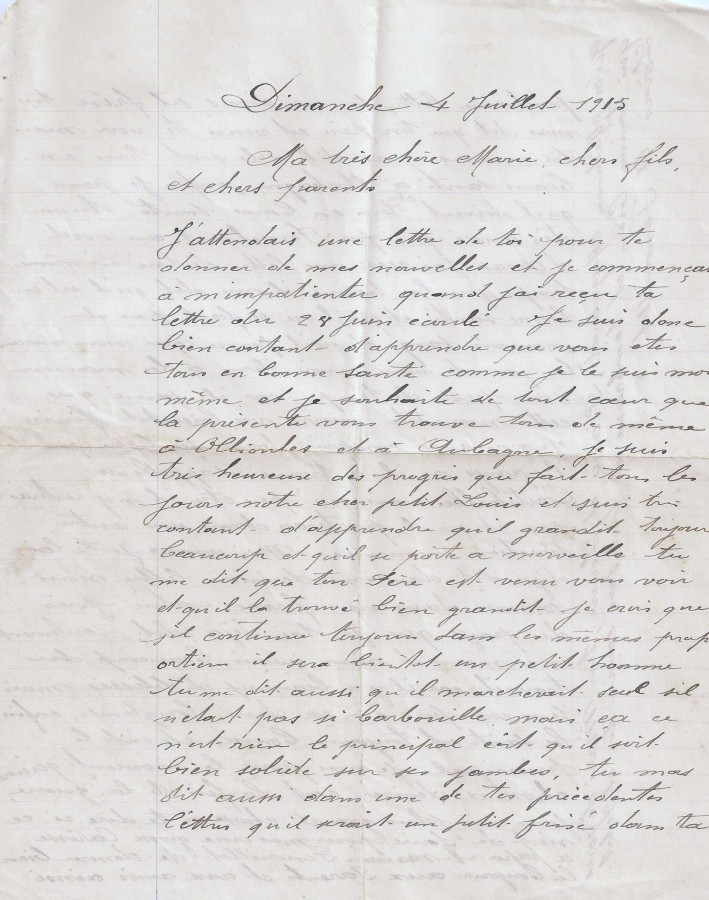 Dimanche 4 Juillet 1915
Ma très chère Marie, chers fils,
et chers parents
J'attendais une lettre de toi pour te
donner de mes nouvelles et je commençai
à m'impatienter quand j'ai reçu ta
lettre du 28 Juin écoulé Je suis donc
bien contant d'apprendre que vous etes
tous en bonne santé comme je le suis moi
même et je souhaite de tout cœur que
la présente vous trouve tous de même
à Ollioules et à Aubagne, je suis
très heureuse des progrès que fait tous les
jours nôtre cher petit Louis et suis très
contant d'apprendre qu'il grandit toujour
beaucoup et qu'il se porte a merveille tu
me dit que ton Père est venu vous voir
et qu'il la trouvé bien grandit je crois que
s'il continue toujours dans les mêmes prop
ortions il sera bientot un petit homme
tu me dit aussi qu'il marcherait seul s'il
n'etait pas si barbouille mais ca ce
n'est rien le principal c'est qu'il soit
bien solide sur ses jambes, tu mas
dit aussi dans une de tes précèdentes
lettres qu'il serait un petit frisé dans ta